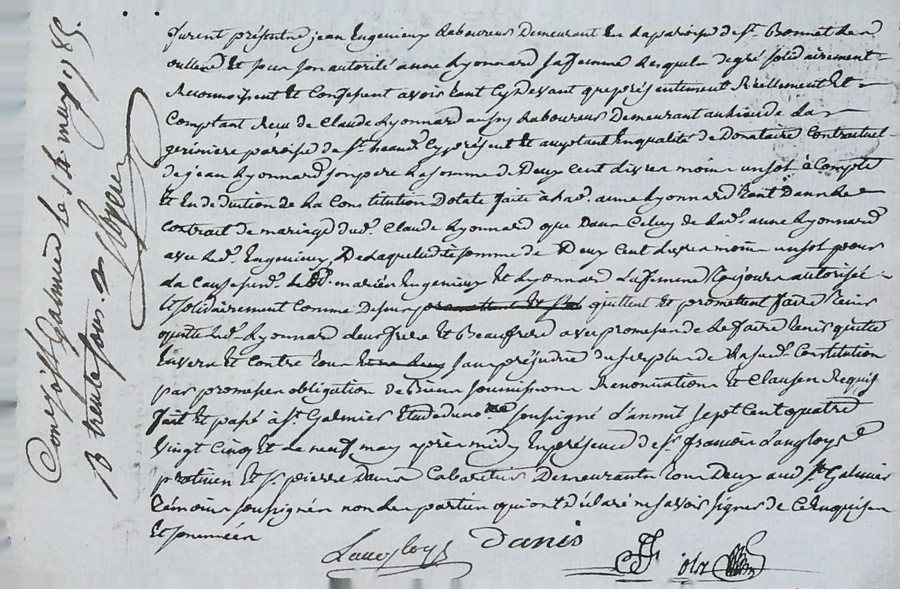 furent présents jean Engenieux Laboureur Demeurant En la paroisse de St. Bonnet les
oulles Et sous son autorité anne Lyonnard sa femme Lesquels de gré solidairement
Reconnoissent Et Confessent avoir tant Cy devant que présentement Réellement Et
Comptant Reçu de Claude Lyonnard aussy Laboureur Demeurant au lieu de la
paroisse de St. Cy présent Et acceptant En qualité de Donataire Contractuel
de jean Lyonnard son pere La somme de Deux Cent livres moins un sol à Compte
Et En deduction de La Constitution Dotale faite a lad. anne Lyonnard tant Dans Le
contrat de mariage dud. Claude Lyonnard que Dans Celuy de lad. anne Lyonnard
avec led. Engenieux, De laquelle de somme de Deux Cent livres moins un sol pour
la Cause susd. Les d. mariés Engenieux Et Lyonnard La femme toujours autorisée
Et solidairement Comme dessus quittent Et promettent faire tenir
quitte led. Lyonnard Leur frere Et Beaufrere avec promesse de Le faire tenir quitte
Envers Et Contre tous sans préjudice du surplus de La susd. Constitution
par promesses obligation de Biens soumissions Renonciations Et Clauses Requis
fait Et passé à St. Galmier Etude du no.re soussigné L'an mil sept Cent quatre
vingt Cinq Et Le neuf may après midy En présence de Sr. françois Langloys
praticien Et Sr. pierre Danis Cabaretier Demeurants tous Deux aud. St. Galmier
témoins soussignés non les parties qui ont déclaré ne savoir signer de Ce Enquises
Et sommées
Langloys Danis
Con.llé à St. Galmier le 14 may 1785.
R trente sous.